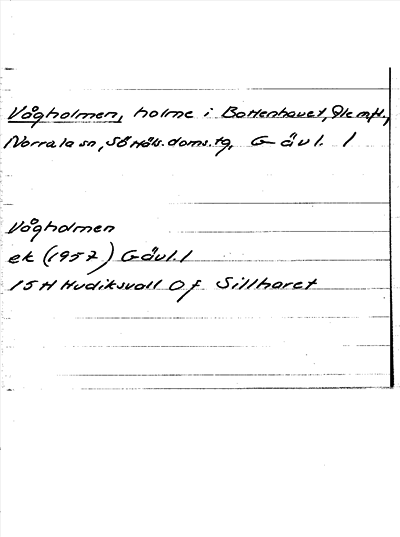 Vågholmen, holme i Bottenhavet,
Norrala sn, SöHäls. doms. tg, Gävl. l
Vågholmen
ek (1957) Gävl. l
15H Hudiksvall 0 f Sillharet